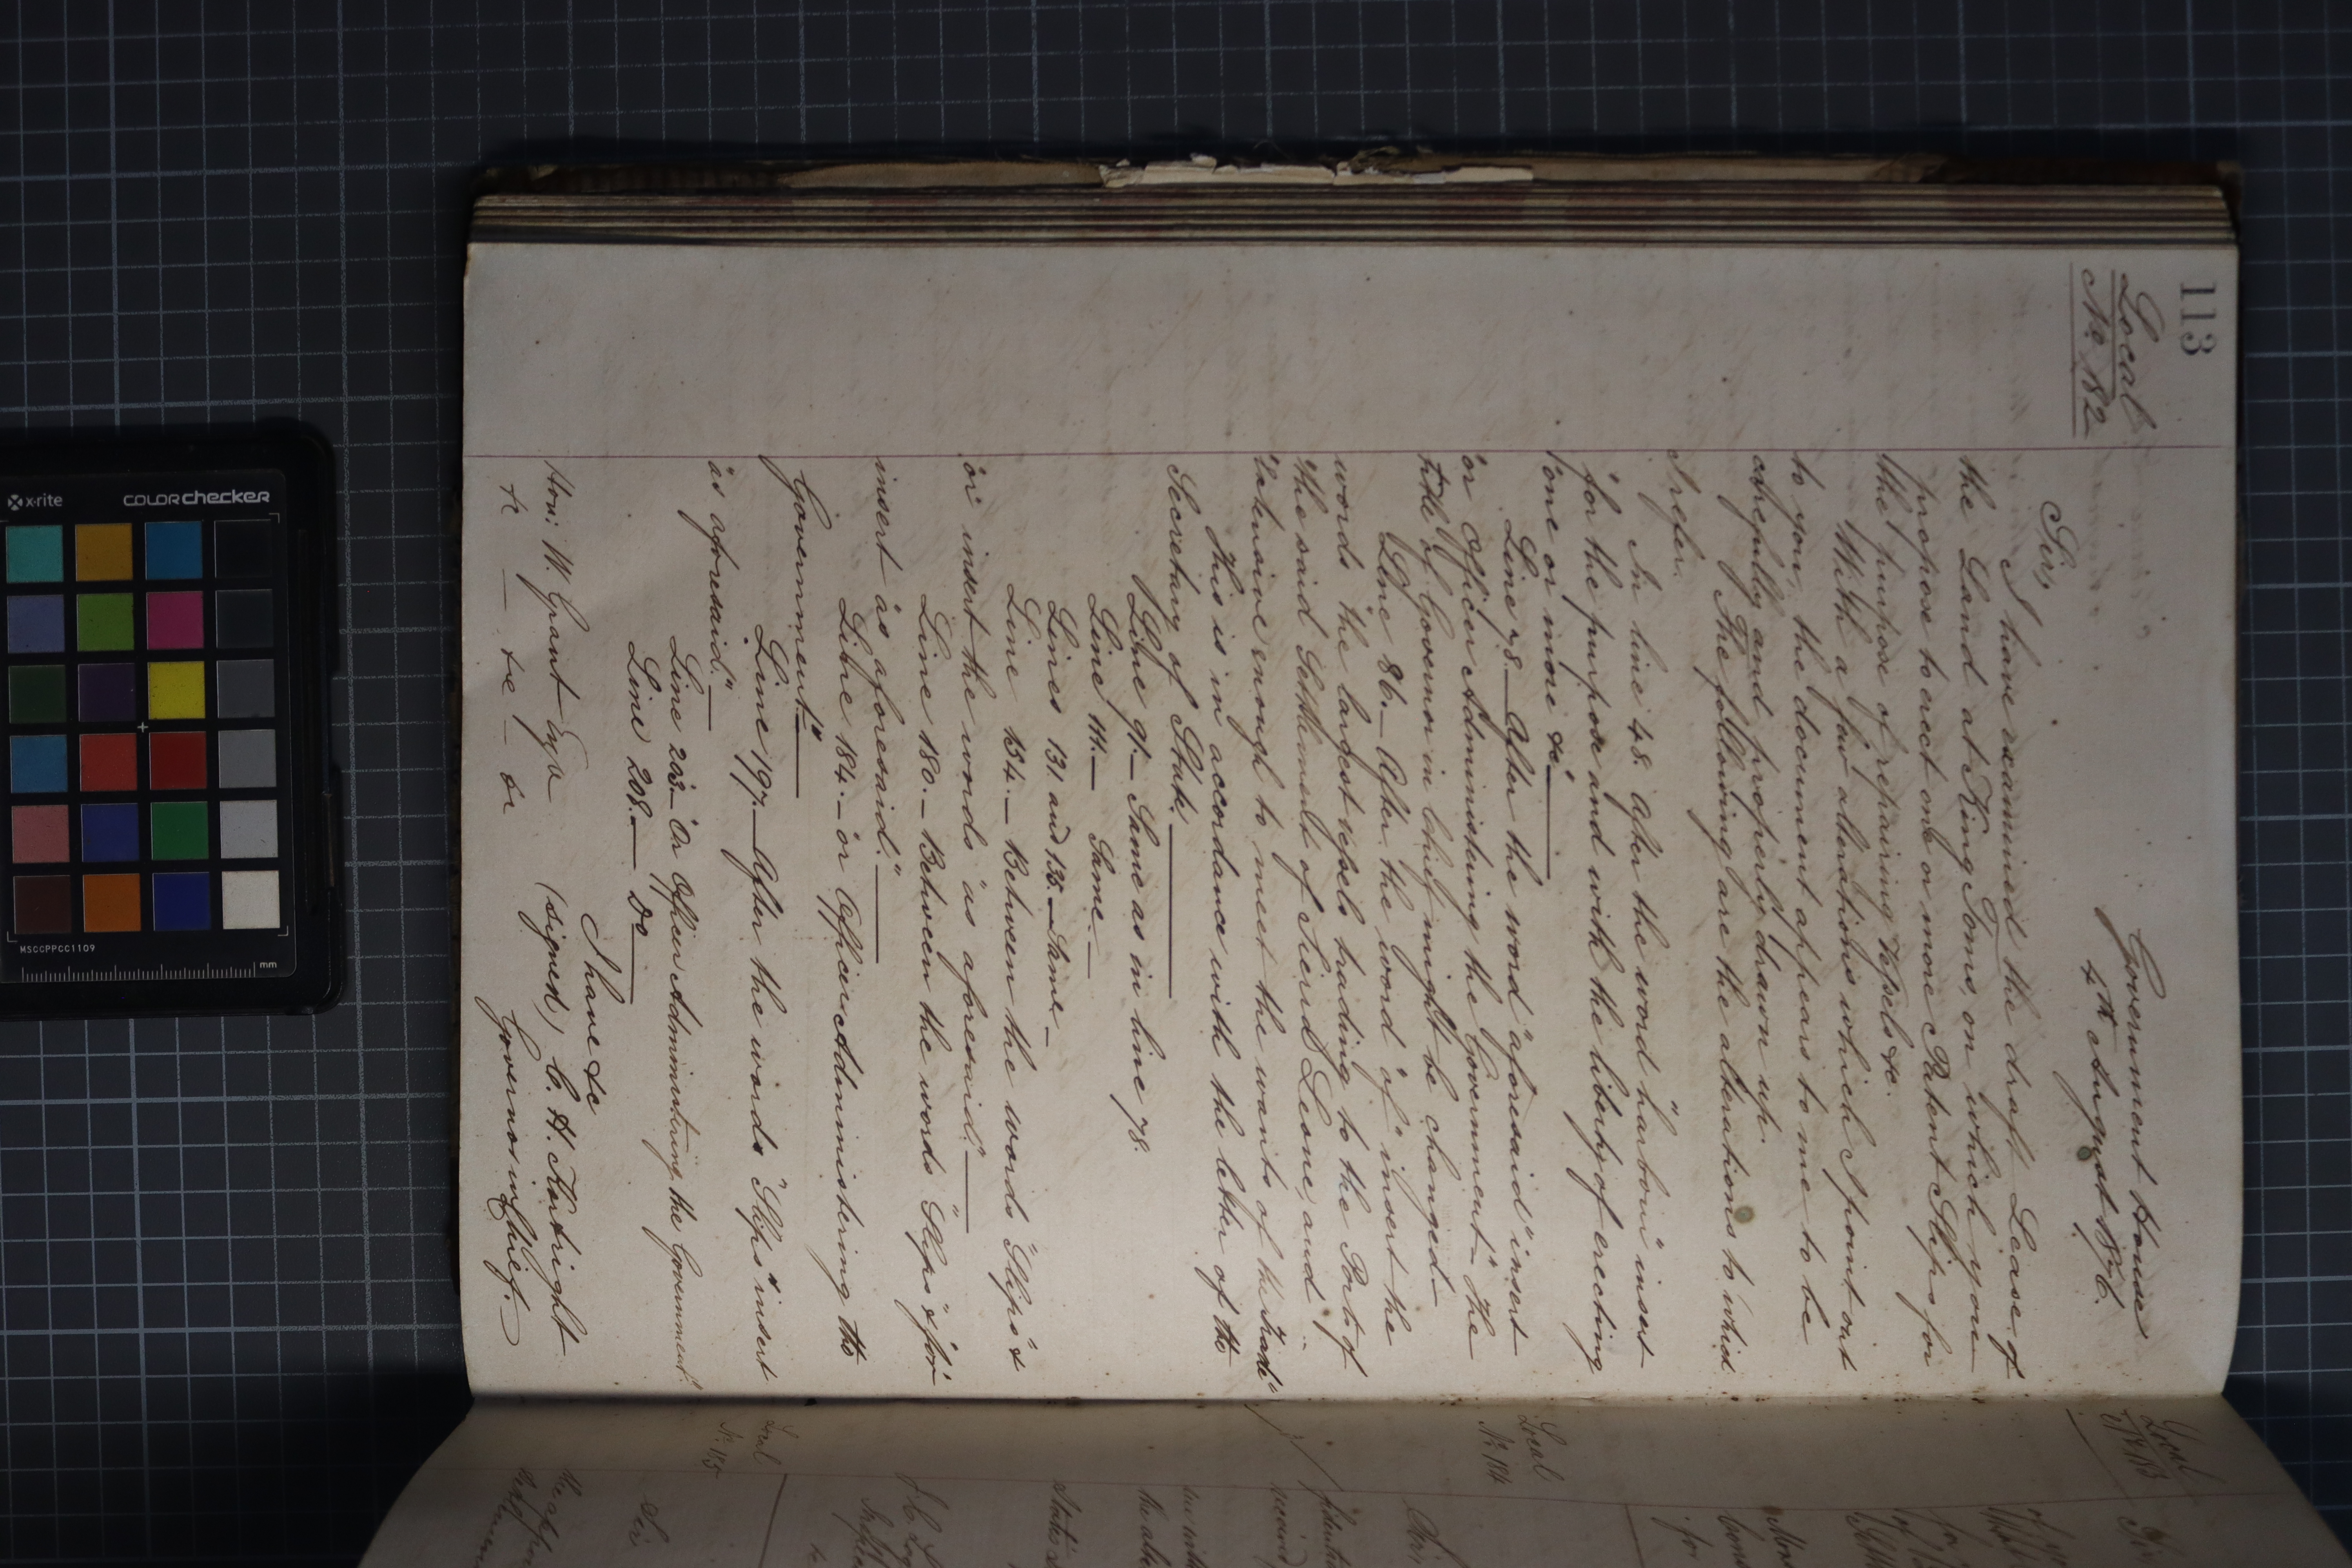 113
Local
No. 182
Government House
4th August 1876.
Sir,
I have examined the draft Lease of
the Land at King Tom, on which you
propose to erect one or more Patent Slips for
the purpose of repairing Vessels &c.
With a few alterations which I point out
to you, the document appears to me to be
carefully and properly drawn up.
The following are the alterations to which
I refer.
In line 48. After the word "harbour" insert
"for the purpose and with the liberty of erecting
"one or more &c"—
Line 78— After the word "aforesaid" insert
"or Officer Administering the Government"— The
title of Governor in Chief might be changed—
Line 86.— After the word "of" insert the
words "the largest vessels trading to the Ports of
"the said Settlement of Sierra Leone, and
"extensive enough to meet the wants of the trade"
This is in accordance with the letter of the
Secretary of State.—
Line 91— Same as in line 78.
Line 111.— Same.—
Lines 131 and 135.— Same—
Line 154.— Between the words "Slips" &
"or" insert the words "as aforesaid."—
Line 180.— Between the words "Slips" & "for"
insert "as aforesaid."—
Line 184.— "or Officer Administering the
Government."—
Line 197.— After the words "Slips" insert
"as aforesaid."—
Line 203.— "Or Officer Administering the Government"
Line 208.— Do—
I have &c
(signed) C. H. Kortright
Governor in Chief.—
Hon: W. Grant Esqe
&c — &c — &c
Local
No 183
Local
No 184
Local
No. 185
Sir